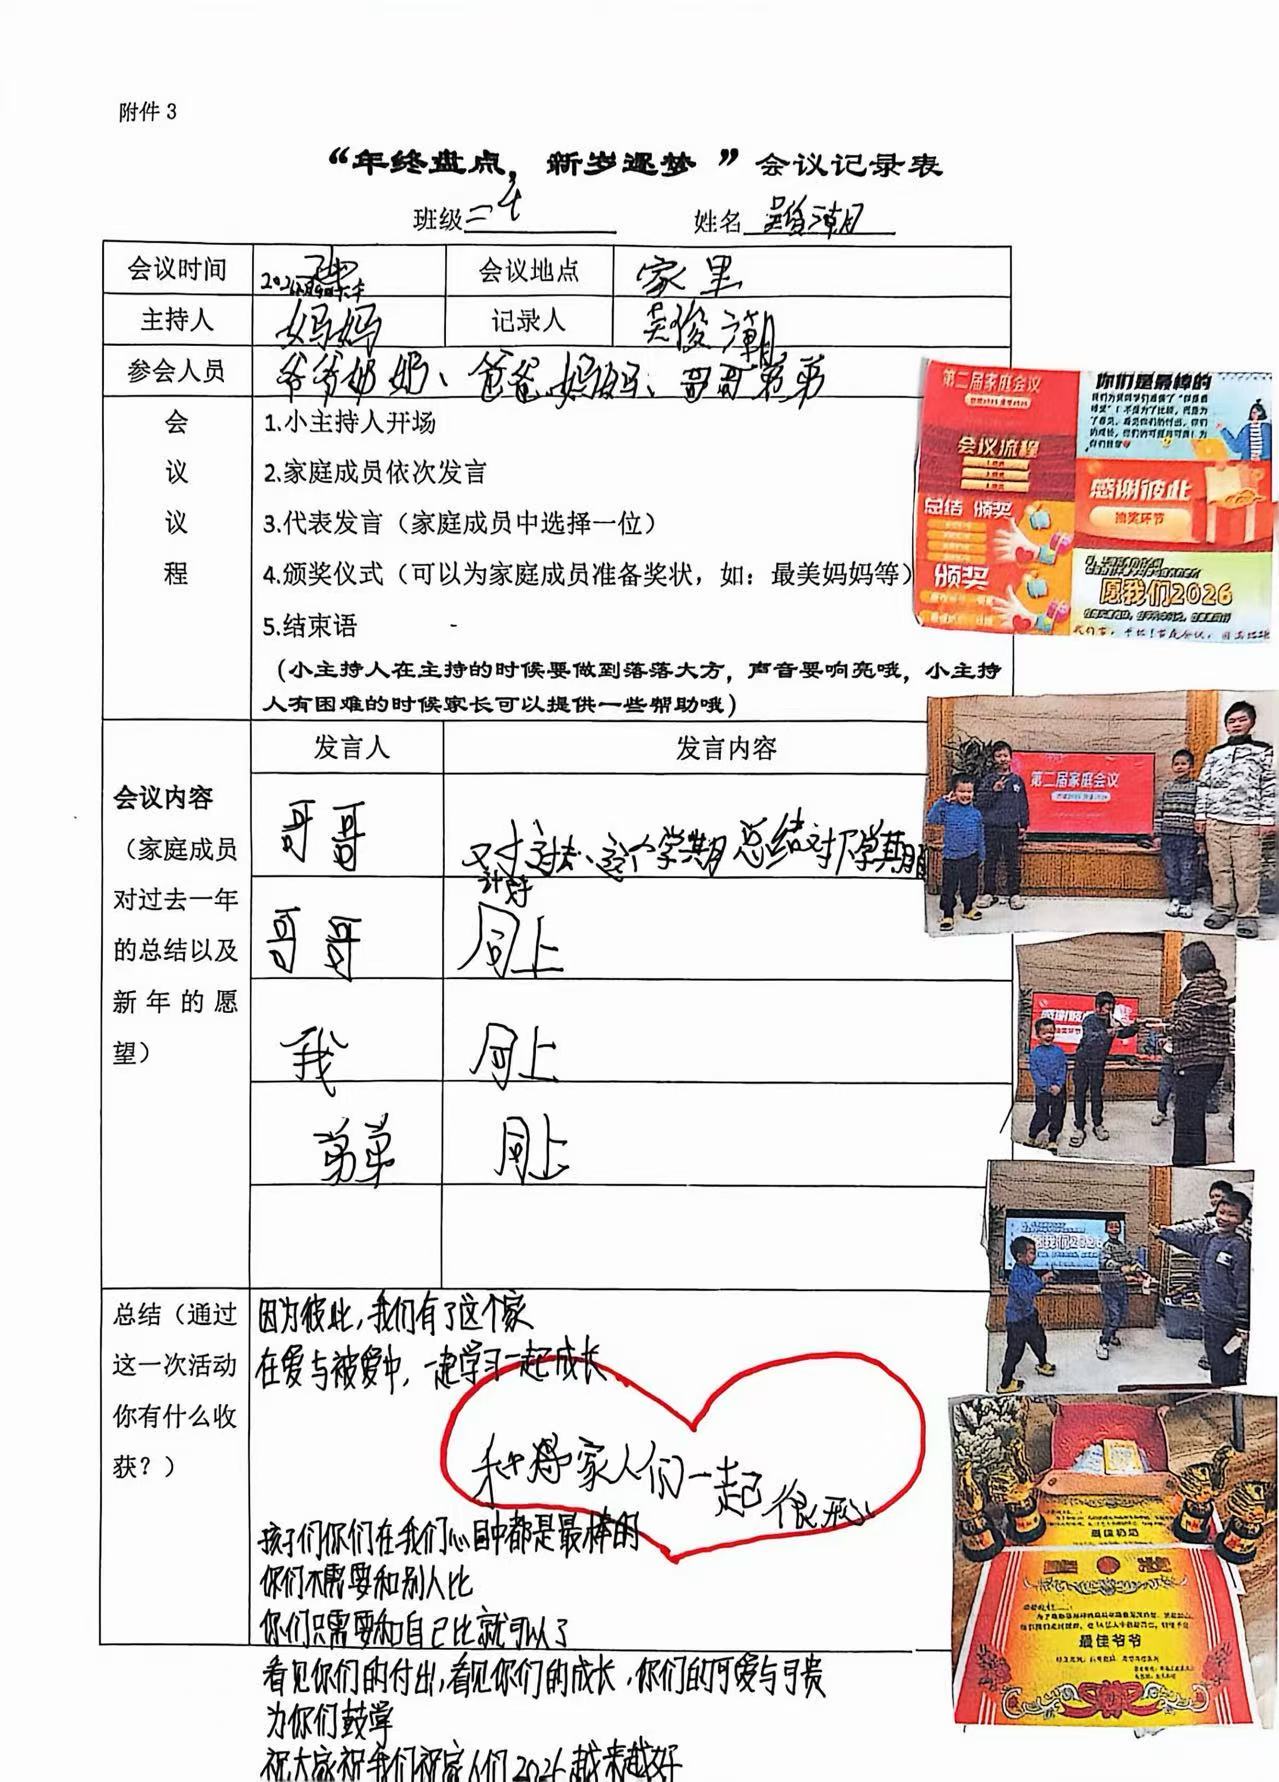 附件 3
“年终盘点，新岁逐梦 ”会议记录表
班级 姓名 吴俊潮
会议时间 会议地点 家里
主持人 妈妈 记录人 吴俊潮
参会人员 爷爷奶奶、爸爸妈妈、哥哥弟弟
会议议程
1.小主持人开场
2.家庭成员依次发言
3.代表发言（家庭成员中选择一位）
4.颁奖仪式（可以为家庭成员准备奖状，如：最美妈妈等）
5.结束语
（小主持人在主持的时候要做到落落大方，声音要响亮哦，小主持
人有困难的时候家长可以提供一些帮助哦）
第二届家庭会议
会议流程
总结 颁奖
颁奖
你们是最棒的
感谢彼此
抽奖环节
愿我们2026
会议内容
（家庭成员
对过去一年
的总结以及
新年的愿
望）
发言人 发言内容
哥哥 对过去、这个学期总结对下学期
计划
哥哥 同上
我 同上
弟弟 同上
第二届家庭会议
感谢彼此
抽奖环节
愿我们2026
总结（通过
这一次活动
你有什么收
获？）
因为彼此，我们有了这个家
在爱与被爱中，一起学习一起成长
和家人们一起很开心
孩子们你们在我们心目中都是最棒的
你们不需要和别人比
你们只需要和自己比就可以了
看见你们的付出，看见你们的成长，你们的可爱与可贵
为你们鼓掌
祝大家祝我们祝家人们2026越来越好
最佳奶奶
最佳爷爷